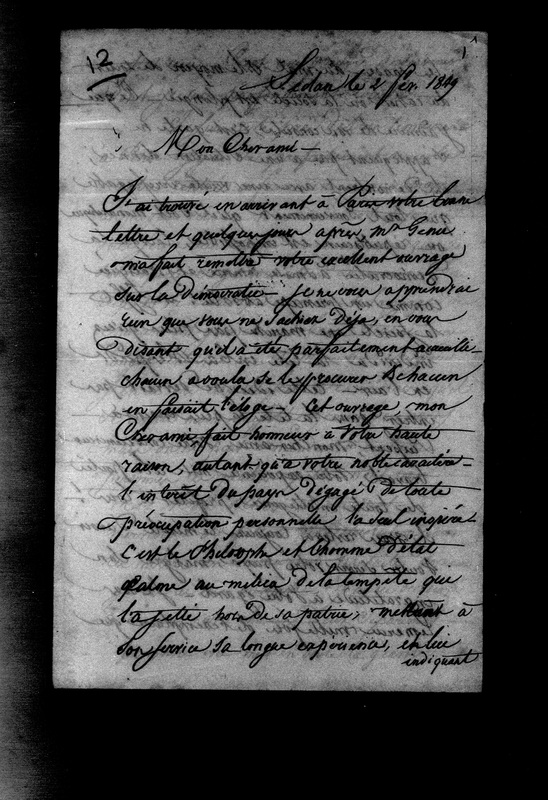 12
1
Sedan le 2 fev. 1849
Mon Cher ami —
J'ai trouvé en arrivant à Paris votre bonne
lettre et quelques jours après, Mr Genie
m'a fait remettre votre excellent ouvrage
sur la Démocratie — je ne vous apprendrai
rien que vous ne sachiez déja, en vous
disant qu'il a été parfaitement accueilli —
chacun a voulu se le procurer & chacun
en faisait l'éloge — Cet ouvrage, mon
Cher ami, fait honneur à votre haute
raison, autant qu'à votre noble caractère —
l'interêt du pays dégagé de toute
préocupation personnelle l'a seul inspiré —
C'est le Philosophe et l'homme d'état
calme au milieu de la tempête qui
l'a jetté hors de sa patrie, mettant à
son service sa longue experience, et lui
indiquant